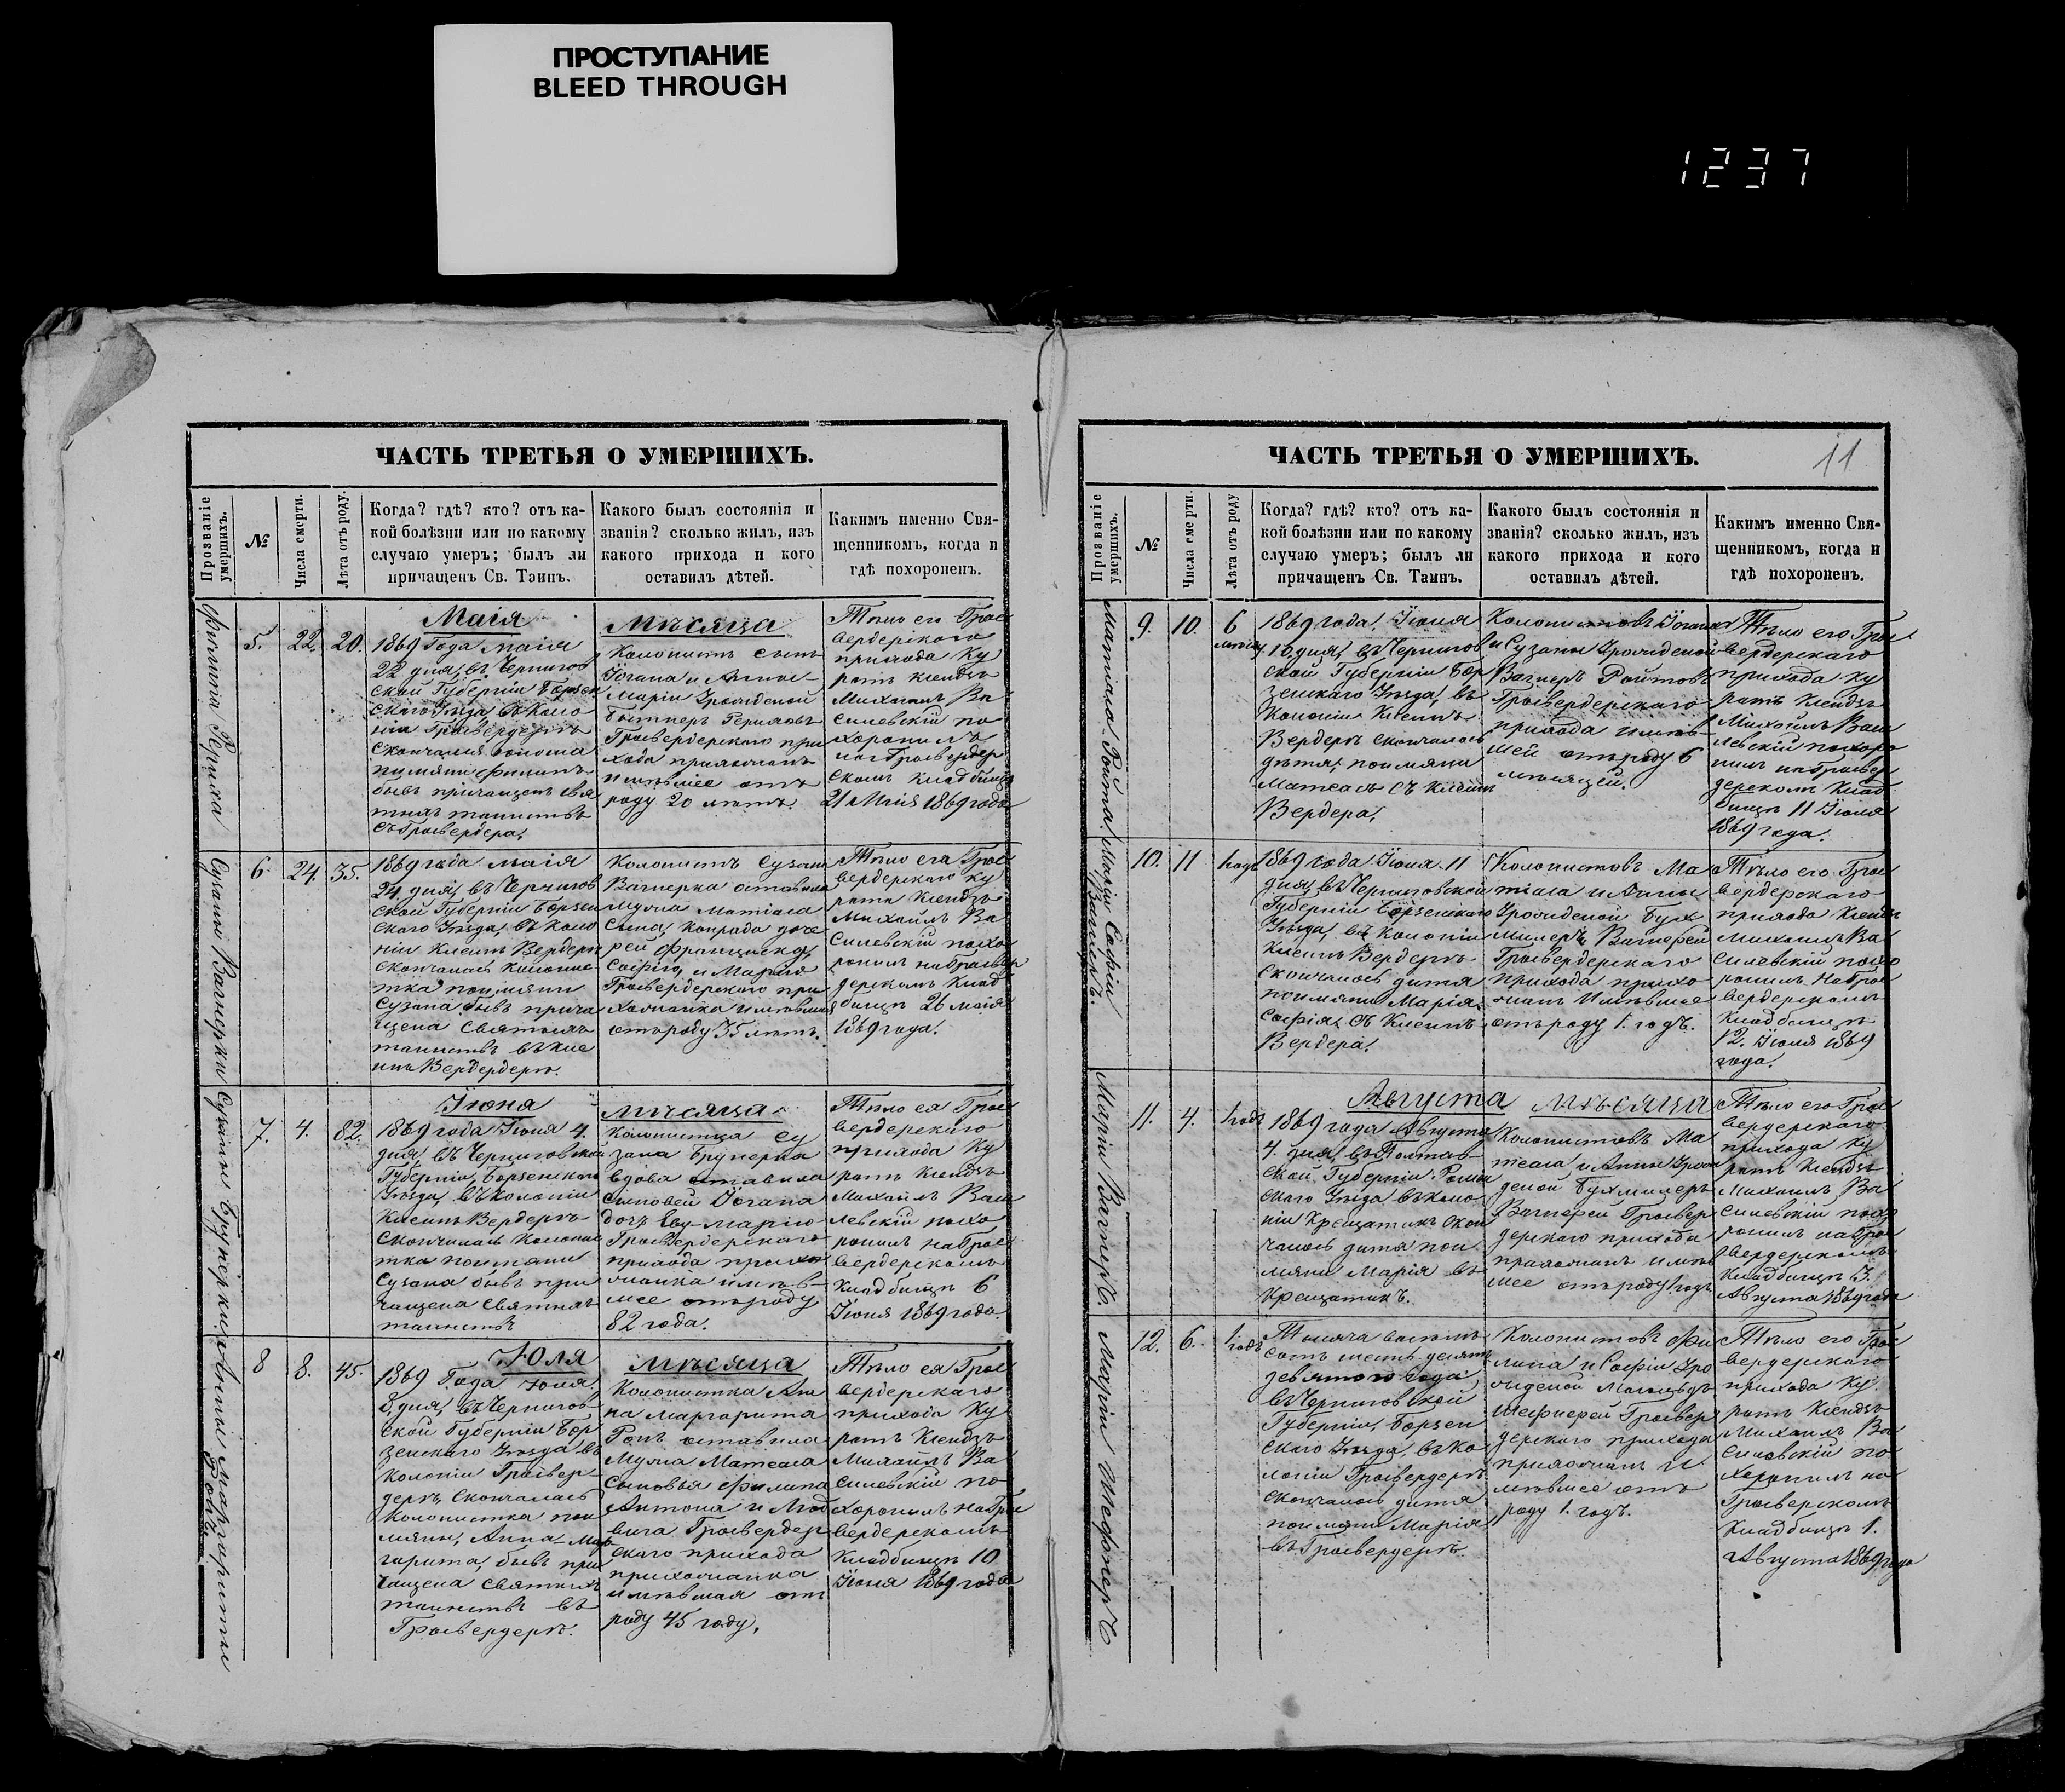 ПРОСТУПАНИЕ
BLEED THROUGH
1237
ЧАСТЬ ТРЕТЬЯ О УМЕРШИХЪ.
Прозваніе умершихъ.
№
Числа смерти.
Лѣта отъ роду.
Когда? гдѣ? кто? отъ ка-
кой болѣзни или по какому
случаю умеръ; былъ ли
причащенъ Св. Таинъ.
Какого былъ состоянія и
званія? сколько жилъ, изъ
какого прихода и кого
оставилъ дѣтей.
Какимъ именно Свя-
щенникомъ, когда и
гдѣ похороненъ.
Филипа
5.
22.
20.
Маія
1869 Года Маія
22 дня, въ Чернигов
ской Губерніи Борзен
скаго Уѣзда, въ Коло
ніи Гросвердеръ
Скончался юноша
по имяни Филипъ
бывъ причащенъ Свя
тыхъ таинствъ
съ Гросвердера.
Мѣсяца
Колонистъ сынъ
Іогана и Анны
Маріи Урожденой
Гросвердерского при
хода прихожанъ
имѣвшее отъ
роду 20 лѣтъ.
Тѣло его Грос
вердерского
прихода Ку
ратъ Ксендзъ
Михаилъ Ва
силевскій по
хоронилъ
на Гросвердер
скомъ Кладбищѣ
21 Маія 1869 года
Сузаны Вагнерки
6.
24.
35.
1869 года Маія
24 дня, въ Чернигов
ской Губерніи Борзен
ского Уѣзда, въ Коло
ніи Клеинъ Вердеръ
скончалась колонис
тка по имяни
Сузана бывъ прича
щена Святыхъ
таинствъ въ Кле
инъ Вердердеръ.
Колонистъ Сузана
Вагнерка оставила
мужа Матіаса
Сына Конрада доче
рей Францишка,
Софію, и Марію
Гросвердерского при
хожанка имѣвшая
отъ роду 35 лѣтъ.
Тѣло его Грос
вердерского Ку
рата Ксендзъ
Михаилъ Ва
силевскій похо
ронилъ на Гросвер
дерскомъ Клад
бищѣ 26 Маія
1869 года.
Сузаны Брунерки
7.
4.
82.
Іюня
1869 года Іюня 4.
дня, въ Черниговской
Губерніи, Борзенского
Уѣзда, въ колоніи
Клеинъ Вердеръ
Скончалась Колонис
тка по имяни
Сузана бывъ при
чащена Святыхъ
таинствъ
Мѣсяца
Колонистка Су
зана Брунерка
вдова оставила
сыновей Іогана
дочь Еву-Марію
Гросвердерскаго
прихода прихо
жанка имѣв-
шее отъ роду
82 года.
Тѣло ея Грос
вердерского
прихода Ку
ратъ Ксендзъ
Михаилъ Васи
левскій похо
ронилъ на Грос
вердерскомъ
Кладбищѣ 6
Іюня 1869 года.
Анны Маргариты
Ронъ
8
8.
45.
Юля
1869 Года Юля
8 дня, въ Чернигов
ской Губерніи Бор
зенского Уѣзда въ
колоніи Гросвер-
деръ, Скончалась
Колонистка по и
мяни, Анна-Мар
гарита, бывъ при
чащена Святыхъ
таинствъ въ
Гросвердеръ.
Мѣсяца
Колонистка Ан
на Маргарита
Ронъ оставила
Мужа Матеаса
Сыновья Филипа
Антона и Люд
вига Гросвердер
скаго прихода
прихожанка
имѣвшая отъ
роду 45 году,
Тѣло ея Грос
вердерскаго
прихода Ку
ратъ Ксендзъ
Михаилъ Ва
силевскій по
хоронилъ на Грос
вердерскомъ
Кладбищѣ 10
Іюня 1869 года
ЧАСТЬ ТРЕТЬЯ О УМЕРШИХЪ.
11
Прозваніе умершихъ.
№
Числа смерти.
Лѣта отъ роду
Когда? гдѣ? кто? отъ ка-
кой болѣзни или по какому
случаю умеръ; былъ ли
причащенъ Св. Таинъ.
Какого былъ состоянія и
званія? сколько жилъ, изъ
какого прихода и кого
оставилъ дѣтей.
Какимъ именно Свя-
щенникомъ, когда и
гдѣ похороненъ.
Матіаса Ройта.
9.
10.
6
мѣсяц
1869 года Іюля
10 дня, въ Чернигов
ской Губерніи Бор
зенскаго Уѣзда, въ
Колоніи Клеинъ
Вердеръ скончалось
дѣтя, по имяни
Матеасъ съ Клеинъ
Вердера,
Колонистовъ Іогана
и Сузаны Урожденой
Вагнеръ Ройтовъ
Гросвердерского
прихода имѣв-
шей отъ роду 6
мѣсяцей.
Тѣло его Грос
вердерскаго
прихода Ку
ратъ Ксендзъ
Михаилъ Васи
левскій похоро
нилъ на Гросвер
дерскомъ Клад
бищѣ 11 Іюля
1869 года.
Маріи Софіи
Вагнеръ.
10.
11
1 годъ
1869 года Іюля 11
дня, въ Черниговской
Губерніи Борзенскаго
Уѣзда, въ Колоніи
Клеинъ Вердеръ
Скончалось дитя
по имяни Марія
Софія, съ Клеинъ
Вердера.
Колонистовъ Ма
тіаса и Анны
Урожденой Бух
милеръ Вагнерей
Гросвердерскаго
прихода прихо
жанъ имѣвшее
отъ роду 1. годъ.
Тѣло его Грос
вердерскаго
прихода Ксендзъ
Михаилъ Ва
силевскій похо
ронилъ на Грос
вердерскомъ
Кладбищѣ
12. Іюля 1869
года.
Маріи Вагнеръ.
11.
4.
1 годъ
Августа
1869 года Августа
4. дня, въ Полтав-
ской Губерніи Ромен
ского Уѣзда въ Коло
ніи Крещатикъ Скон
чалось дитя по и
мяни Марія въ
Крещатикъ.
Мѣсяца
Колонистовъ Ма
теаса и Анны Урож
деной Бухмилеръ
Вагнерей Гросвер
дерского прихода
прихожанъ имѣв
шее отъ роду 1 годъ
Тѣло его Грос
вердерскаго
прихода Ку
ратъ Ксендзъ
Михаилъ Ва
силевскій похо
ронилъ на Грос
вердерскомъ
Кладбищѣ 3.
Августа 1869 года
Маріи Шефнеръ
12.
6.
1 годъ
Тысяча восемь
сотъ шесть десятъ
девятого года
въ Черниговской
Губерніи, Борзен
ского Уѣзда, въ Ко
лоніи Гросвердеръ
скончалось дитя
по имяни Марія
въ Гросвердеръ.
Колонистовъ Фи
липа и Софіи Уро
жденой
Шефнерей Гросвер
дерского прихода
прихожанъ и
мѣвшее отъ
роду 1. годъ.
Тѣло его Грос
вердерскаго
прихода Ку
ратъ Ксендзъ
Михаилъ Ва
силевскій по
хоронилъ на
Гросверскомъ
Кладбищѣ 1.
Августа 1869 года